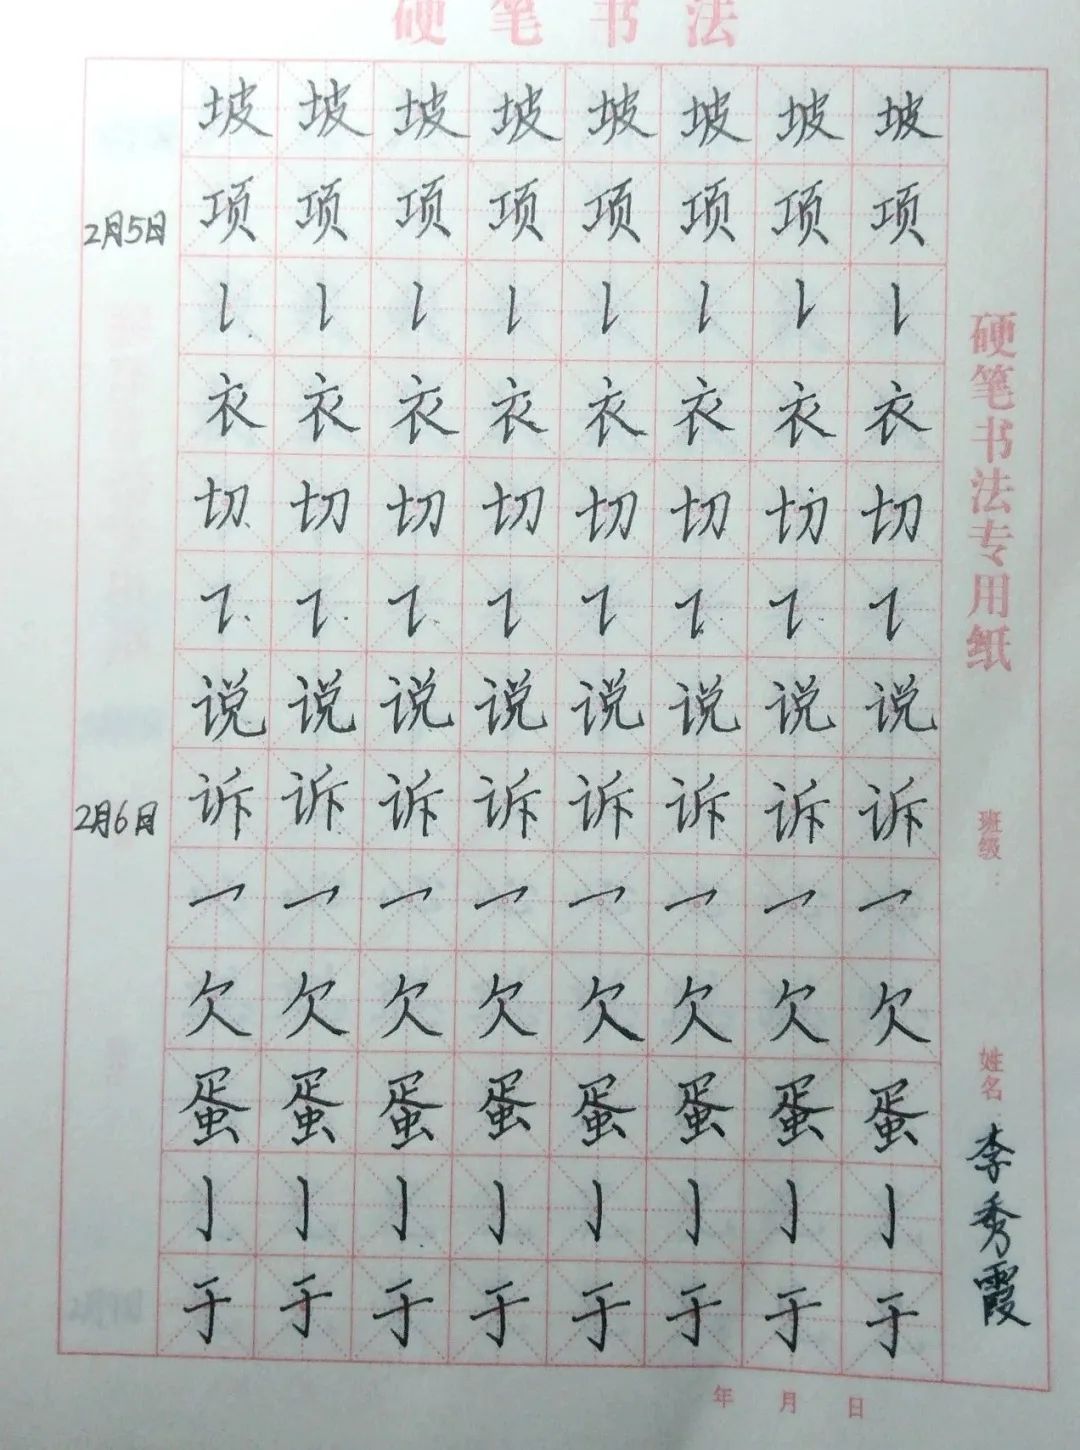 硬笔书法
坡坡坡坡坡坡坡坡
2月5日 项项项项项项项项
衣衣衣衣衣衣衣衣
切切切切切切切切
说说说说说说说说
2月6日 诉诉诉诉诉诉诉诉
欠欠欠欠欠欠欠欠
蛋蛋蛋蛋蛋蛋蛋蛋
亅亅亅亅亅亅亅亅
于于于于于于于于
硬笔书法专用纸
班级：
姓名：李秀霞
年 月 日